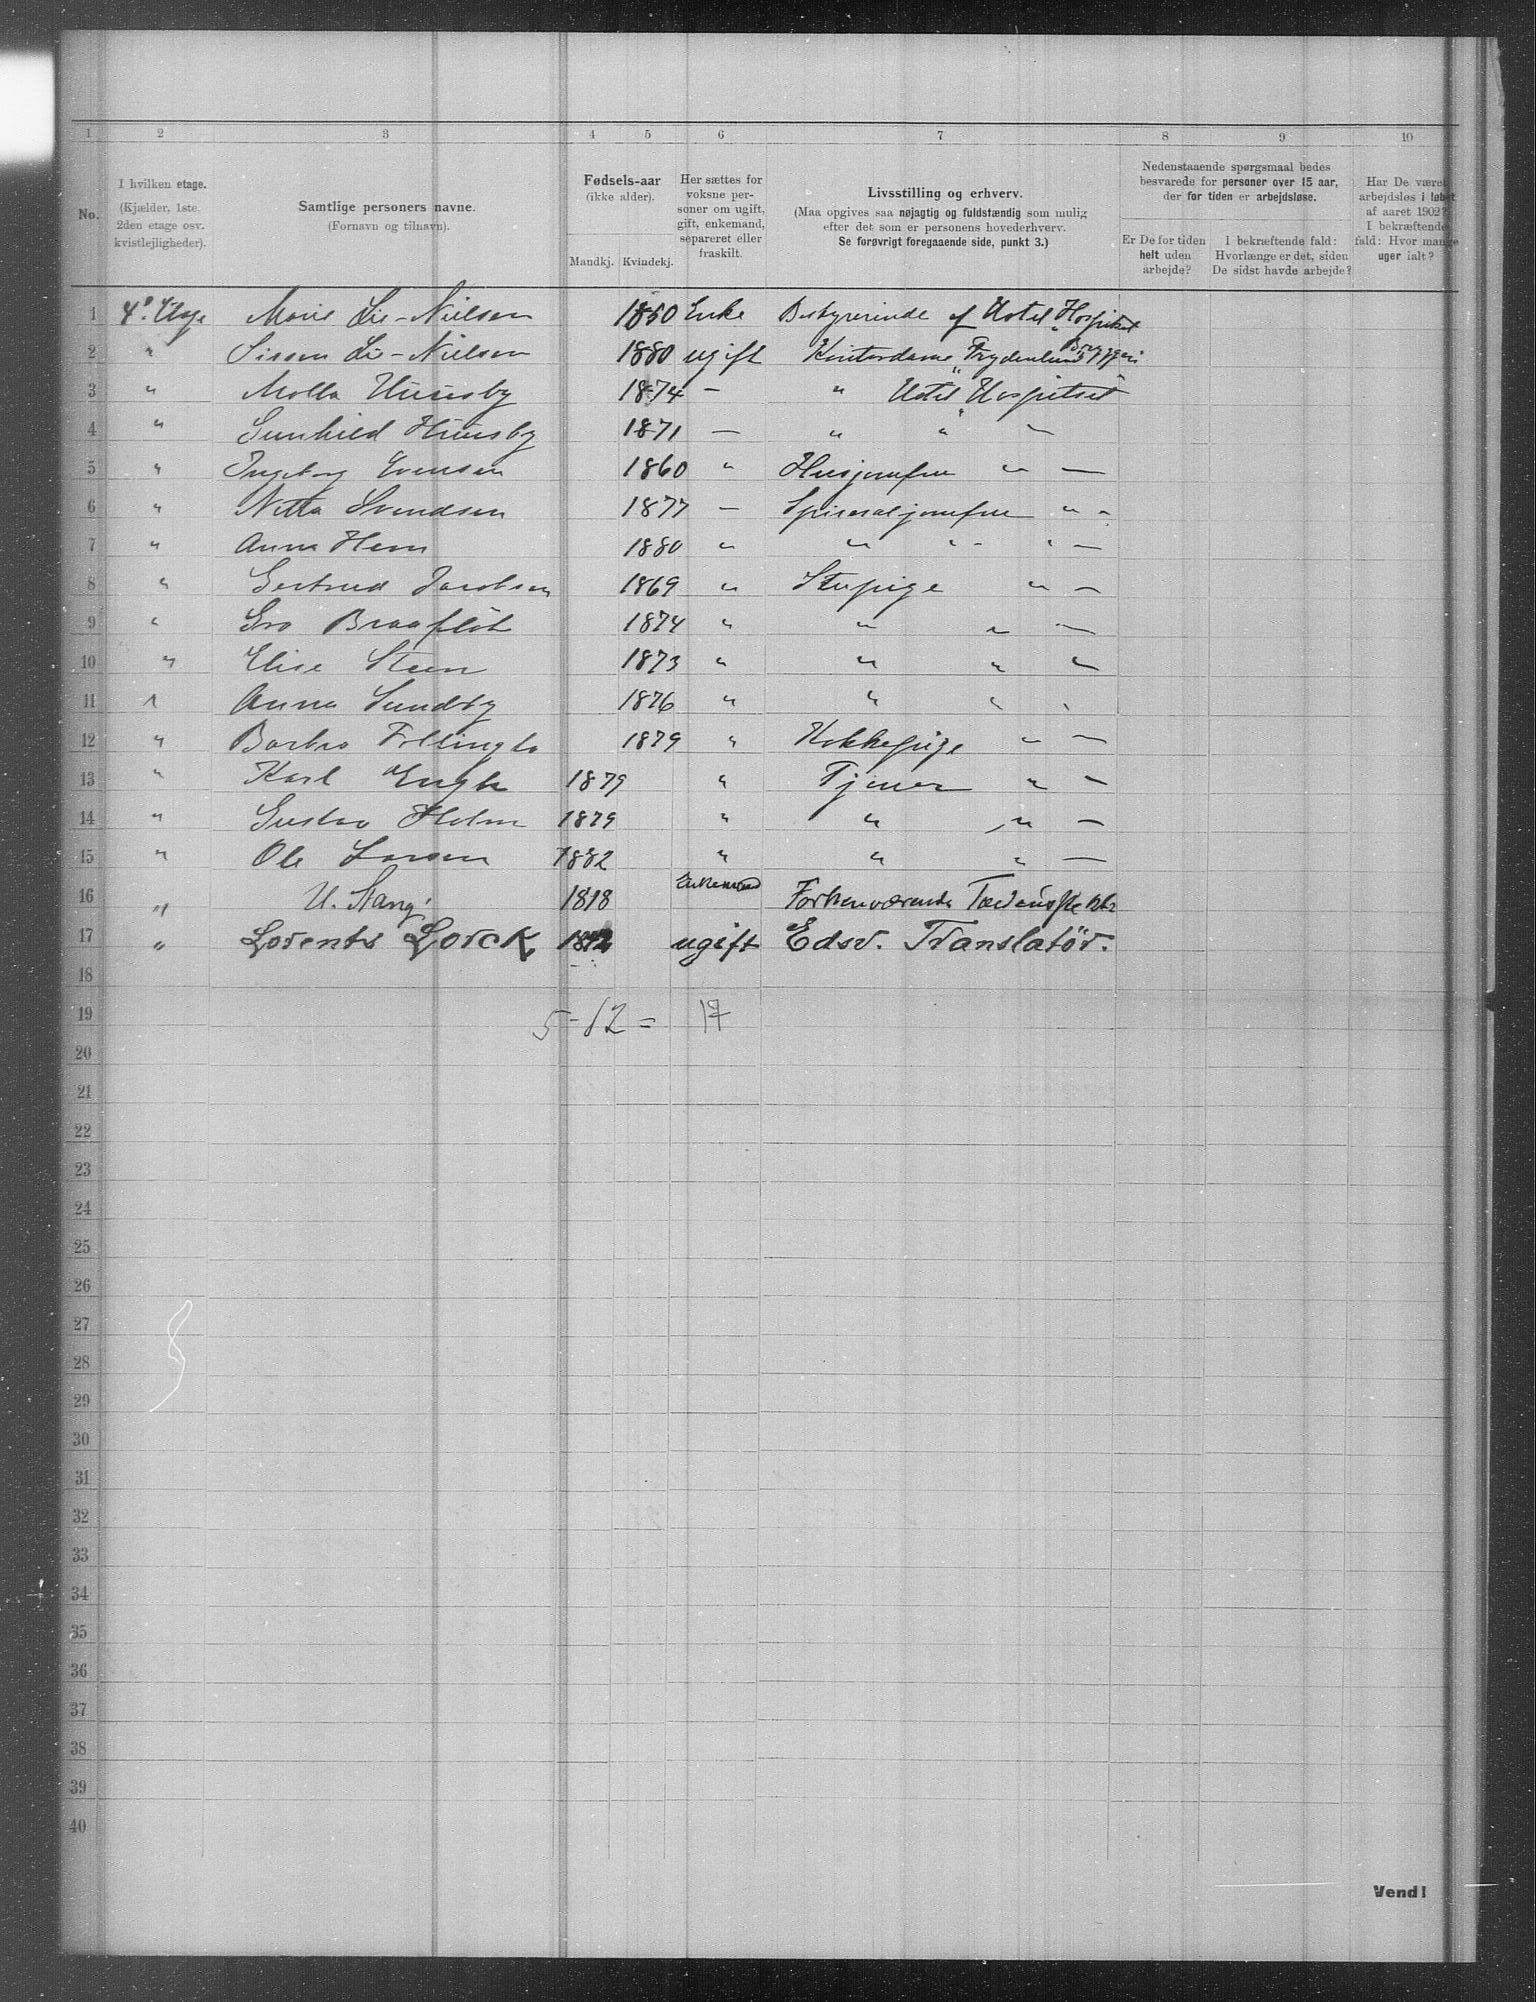 1 2 3 4 5 6 7 8 9 10
No.
I hvilken etage.
(Kjælder, 1ste.
2den etage osv.
kvistlejligheder).
Samtlige personers navne.
(Fornavn og tilnavn).
Fødsels-aar
(ikke alder).
Mandkj. Kvindekj.
Her sættes for
voksne per-
soner om ugift,
gift, enkemand,
separeret eller
fraskilt.
Livsstilling og erhverv.
(Maa opgives saa nøjagtig og fuldstændig som mulig
efter det som er personens hovederhverv.
Se forøvrigt foregaaende side, punkt 3.)
Nedenstaaende spørgsmaal bedes
besvarede for personer over 15 aar,
der for tiden er arbejdsløse.
Er De for tiden
helt uden
arbejde?
I bekræftende fald:
Hvorlænge er det, siden
De sidst havde arbejde?
Har De været
arbejdsløs i løbet
af aaret 1902?
I bekræftende
fald: Hvor mange
uger ialt?
1 4de Etage Marie Lie-Nielsen 1850 Enke Bestyrerinde af Hotel "Hospitset
2 " Sissen Lie-Nielsen 1880 ugift Kontordame "Frydenlund Bryggeri
3 " Molla Huseby 1874 — " Hotel "Hospitset
4 " Gunhild Huseby 1871 — " " —
5 " Ingeborg Evensen 1860 " Husjomfru " —
6 " Svendsen 1877 — Spisesaljomfru " "
7 " Anna Hem 1880 " " " - " —
8 " Gertrud Jacobsen 1869 " Stupige " —
9 " Gro Braafløt 1874 " " " —
10 " Elise Steen 1873 " " " "
11 " Anna Sundby 1876 " " " "
12 " Barbro 1879 " Kokkepige " —
13 " Karl Engh 1879 " Tjener " —
14 " Gustav Holm 1879 " " " —
15 " Ole Larsen 1882 " " " —
16 " U. Stang. 1818 Enkemand Forhenværende
17 " Lorents Lorck ugift Edsv. Translatör.
18
19 5-12 = 17
20
21
22
23
24
25
26
27
28
29
30
31
32
33
34
35
36
37
38
39
40
Vend!